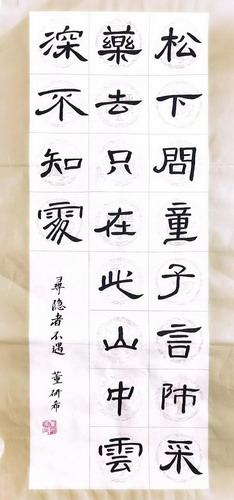 松下問童子言師采
藥去只在此山中雲
深不知處
尋隐者不遇 董研希